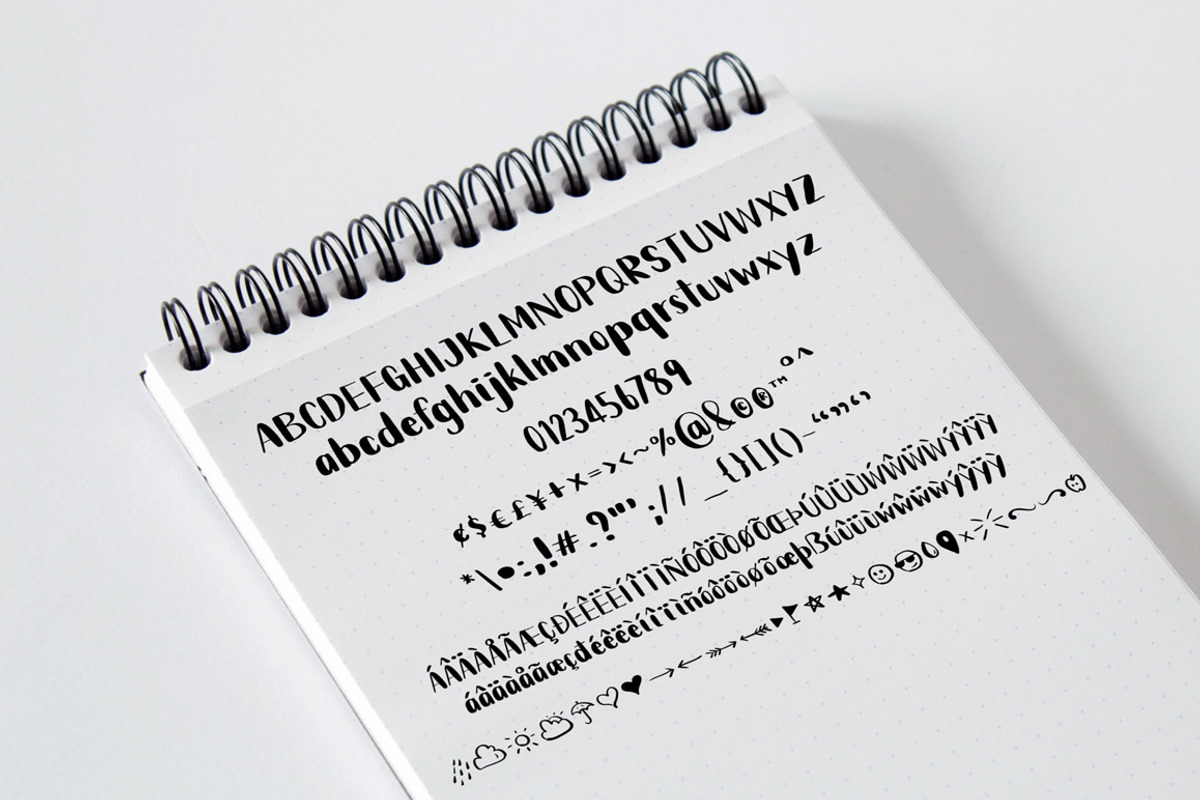 ABCDEFGHIJKLMNOPQRSTUVWXYZ
abcdefghijklmnopqrstuvwxyz
0123456789
¢$€£¥+×=><~%@&©®™°^
*\•:,!#.?"' ;/| _{}[]()-“”‘’
ÁÂÄÀÅÃÆÇÐÉÊËÈÍÎÏÌÑÓÔÖÒØÕŒÞÚÛÜÙẂŴẄẀÝŶŸỲ
áâäàåãæçđéêëèíîïìñóôöòøõœþßúûüùẃŵẅẁýŷÿỳ